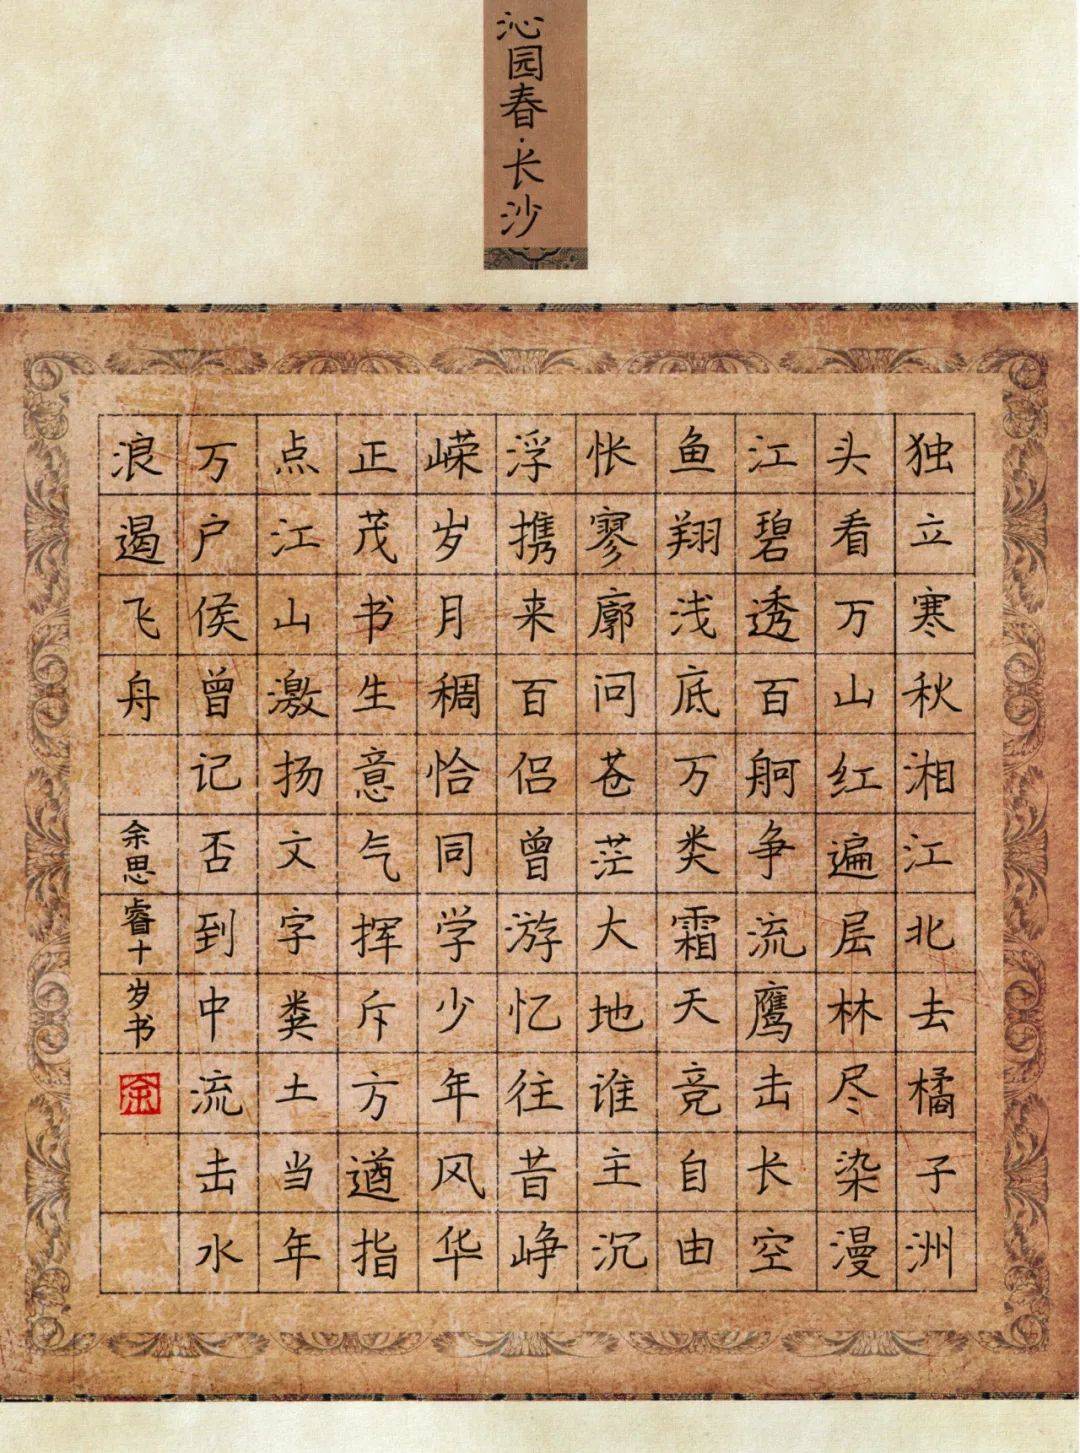 沁园春·长沙
独立寒秋湘江北去橘子洲
头看万山红遍层林尽染漫
江碧透百舸争流鹰击长空
鱼翔浅底万类霜天竞自由
怅寥廓问苍茫大地谁主沉
浮携来百侣曾游忆往昔峥
嵘岁月稠恰同学少年风华
正茂书生意气挥斥方遒指
点江山激扬文字粪土当年
万户侯曾记否到中流击水
浪遏飞舟
余思睿十岁书
余